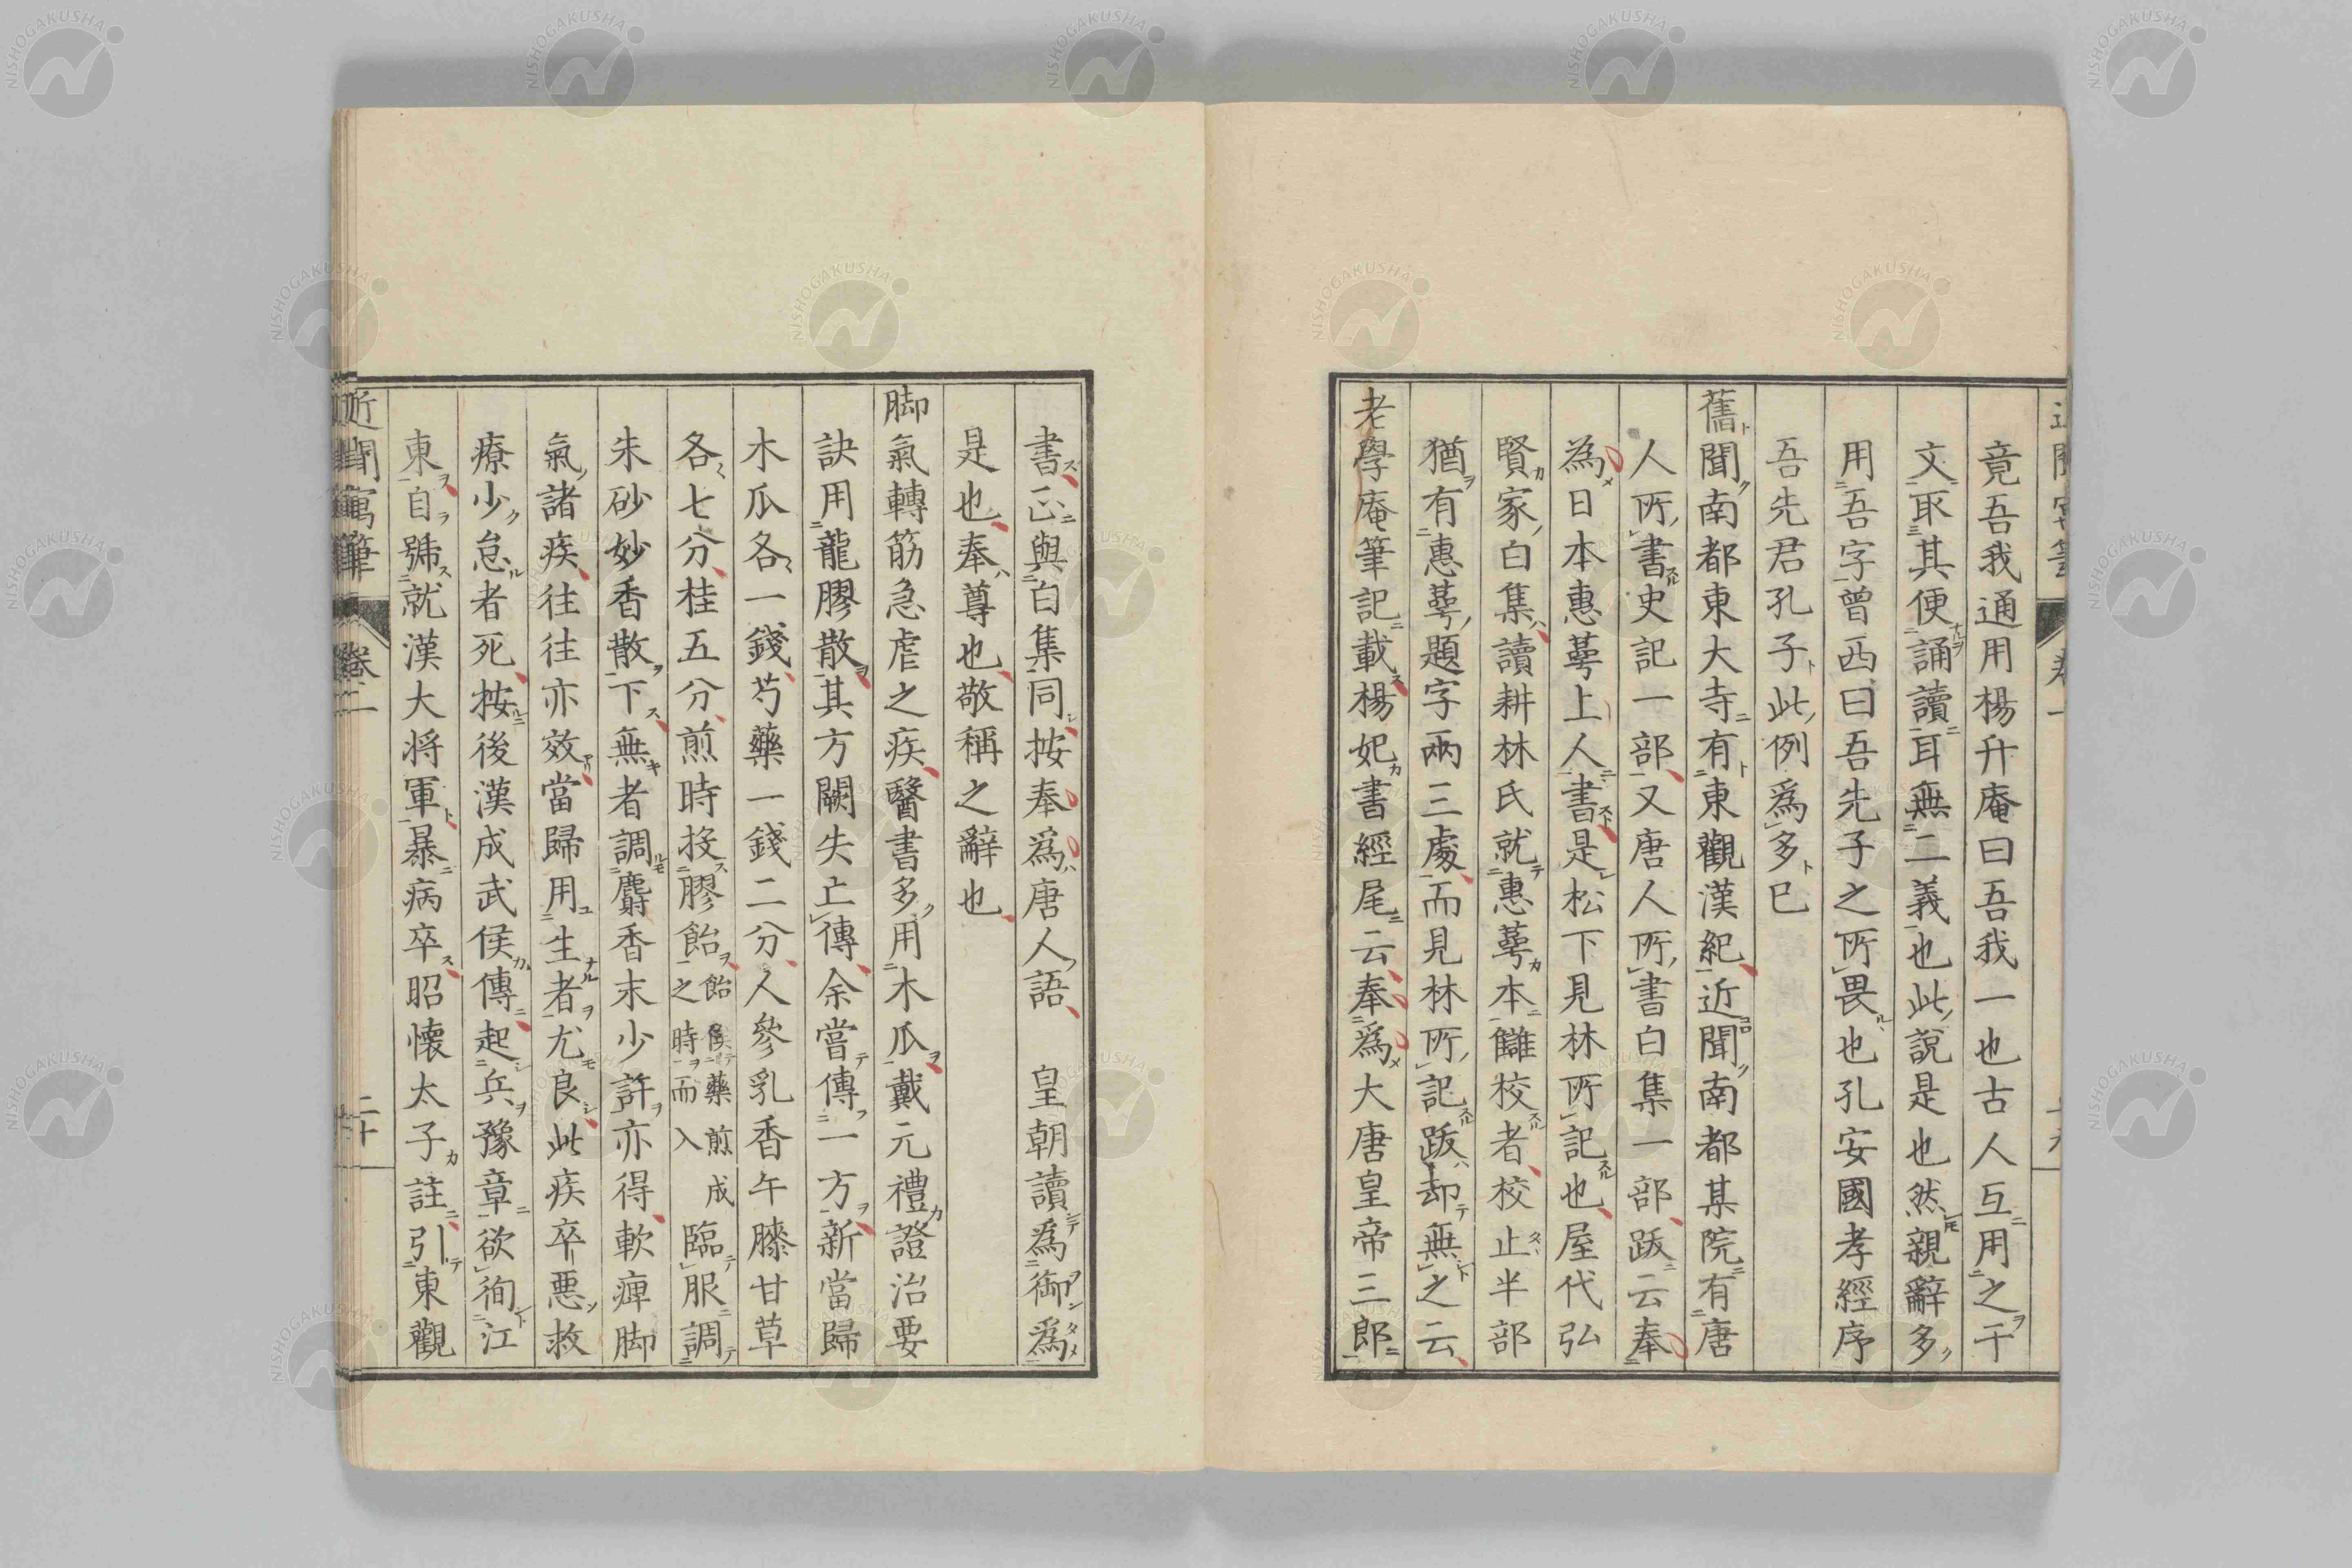 竟吾我通用楊升庵曰吾我一也古人互用之干
文取其便誦讀耳無二義也此說是也然親辭多
用吾字曾西曰吾先子之所畏也孔安國孝經序
吾先君孔子此例爲多已
舊聞南都東大寺有東觀漢紀近聞南都某院有唐
人所書史記一部又唐人所書白集一部跋云奉
為日本惠萼上人書是松下見林所記也屋代弘
賢家白集讀耕林氏就惠萼本讎校者校止半部
猶有惠萼題字兩三處而見林所記跋却無之云
老學庵筆記載楊妃書經尾云奉爲大唐皇帝三郎
書正與白集同按奉爲唐人語　皇朝讀爲御爲
是也奉尊也敬稱之辭也
脚氣轉筋急虐之疾醫書多用木瓜戴元禮證治要
訣用龍膠散其方闕失亡傳余嘗傳一方新當歸
木瓜各一錢芍藥一錢二分人參乳香午膝甘草
各七分桂五分煎時投膠飴飴俟藥煎成之時而入臨服調
朱砂妙香散下無者調麝香末少許亦得軟痺脚
氣諸疾往往亦效當歸用生者尤良此疾卒悪救
療少怠者死按後漢成武侯傳起兵豫章欲徇江
東自號就漢大将軍暴病卒昭懷太子註引東觀
近聞寓筆 卷二 二十